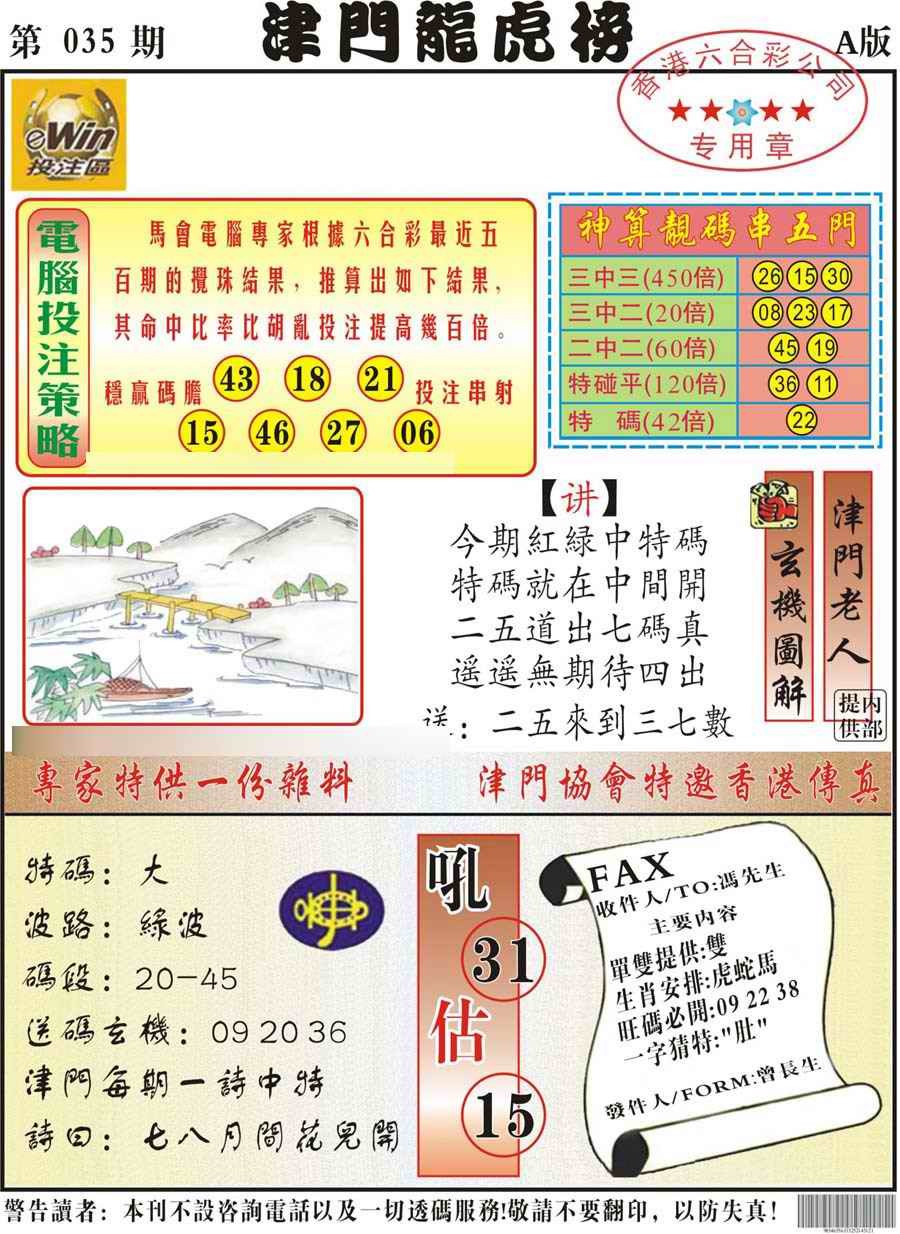 第 035 期
津門龍虎榜
A版
香港六合彩公司
专用章
eWin
投注區
電腦投注策略
馬會電腦專家根據六合彩最近五
百期的攪珠結果，推算出如下結果，
其命中比率比胡亂投注提高幾百倍。
穩贏碼膽 43 18 21 投注串射
15 46 27 06
神算靚碼串五門
三中三(450倍) 26 15 30
三中二(20倍) 08 23 17
二中二(60倍) 45 19
特碰平(120倍) 36 11
特 碼(42倍) 22
【讲】
今期紅綠中特碼
特碼就在中間開
二五道出七碼真
遥遥無期待四出
送：二五來到三七數
玄機圖解
津門老人
内部提供
專家特供一份雜料
津門協會特邀香港傳真
特碼：大
波路：綠波
碼段：20-45
送碼玄機：09 20 36
津門每期一詩中特
詩曰：七八月間花兒開
吼
31
估
15
FAX
收件人/TO:馮先生
主要内容
單雙提供:雙
生肖安排:虎蛇馬
旺碼必開:09 22 38
一字猜特:"肚"
發件人/FORM:曾長生
警告讀者：本刊不設咨詢電話以及一切透碼服務!敬請不要翻印，以防失真！